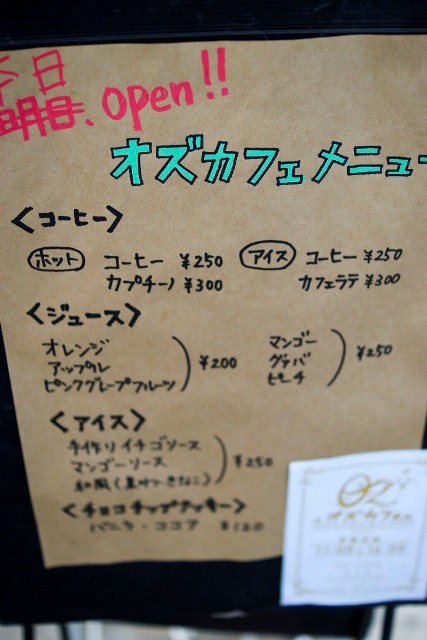 今日
明日、open!!
オズカフェメニュー
<コーヒー>
ホット コーヒー ¥250 アイス コーヒー ¥250
カプチーノ ¥300 カフェラテ ¥300
<ジュース>
オレンジ
アップル
ピンクグレープフルーツ
¥200
マンゴー
グァバ
ピーチ
¥250
<アイス>
手作りイチゴソース
マンゴーソース
和風(黒みつ・きなこ)
¥250
<チョコチップクッキー>
バニラ・ココア ¥120
OZ
オズカフェ